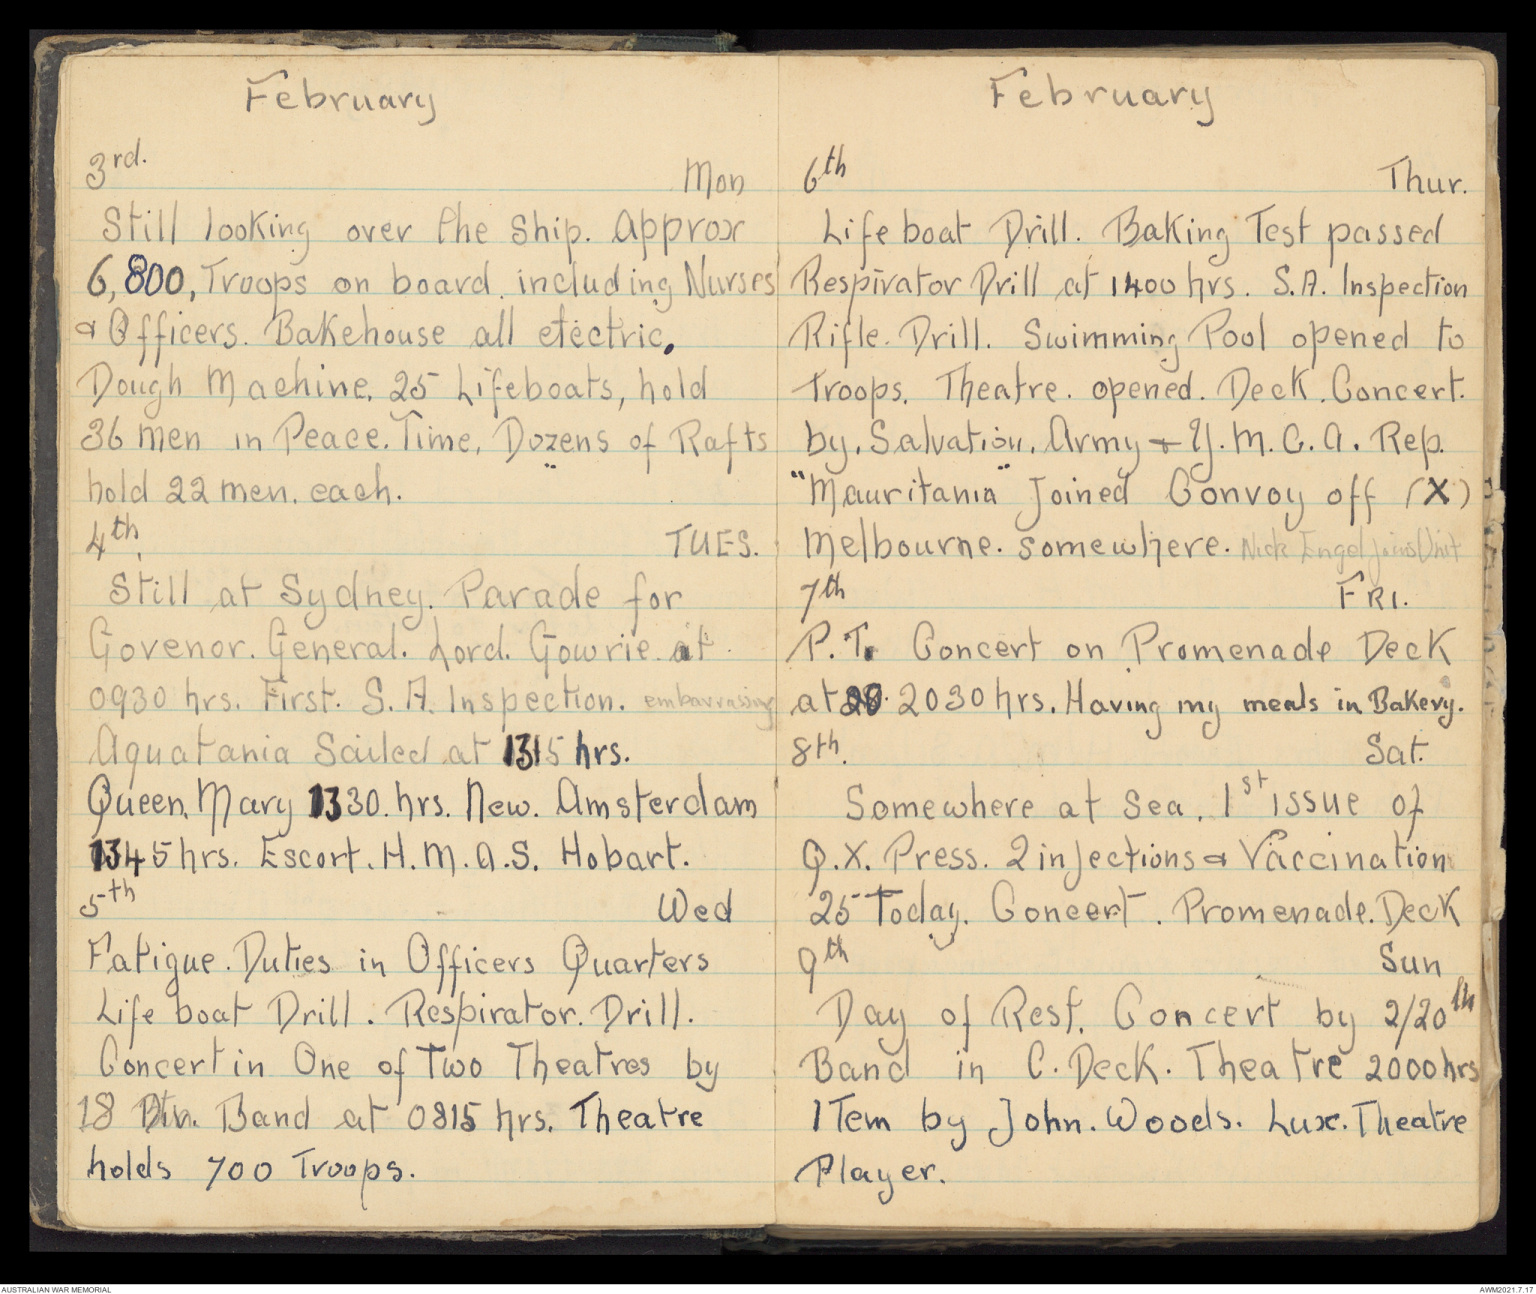 February
3rd. Mon
Still looking over the Ship. Approx
6,800, Troops on board including Nurses
& Officers. Bakehouse all electric.
Dough Machine. 25 Lifeboats, hold
36 men in Peace. Time. Dozens of Rafts
hold 22 men. each.
4th. TUES.
Still at Sydney. Parade for
Govenor. General. Lord. Gowrie at
0930 hrs. First. S.A. Inspection. embarrasing
Aquatania Sailed at 1315 hrs.
Queen. Mary 1330. hrs. New. Amsterdam
1345 hrs. Escort. H.M.A.S. Hobart.
5th Wed
Fatigue. Duties in Officers Quarters
Life boat Drill. Respirator. Drill.
Concert in One of Two Theatres by
18 Btn. Band at 0815 hrs. Theatre
holds 700 Troops.
February
6th Thur.
Life boat Drill. Baking Test passed
Respirator Drill at 1400 hrs. S.A. Inspection
Rifle. Drill. Swimming Pool opened to
Troops. Theatre. opened. Deck. Concert.
by. Salvation. Army + Y.M.C.A. Rep.
"Mauritania" Joined Convoy off (X)
Melbourne. somewhere. Nick Engel joins Unit
7th FRI.
P.T. Concert on Promenade Deck
at 20. 2030 hrs. Having my meals in Bakery.
8th. Sat.
Somewhere at Sea. 1st issue of
Q.X. Press. 2 injections & Vaccination
25 Today. Concert. Promenade. Deck
9th Sun
Day of Rest. Concert by 2/20th
Band in C. Deck. Theatre 2000 hrs
1 Tem by John. Woods. Lux. Theatre
Player.
AUSTRALIAN WAR MEMORIAL
AWM2021.7.17